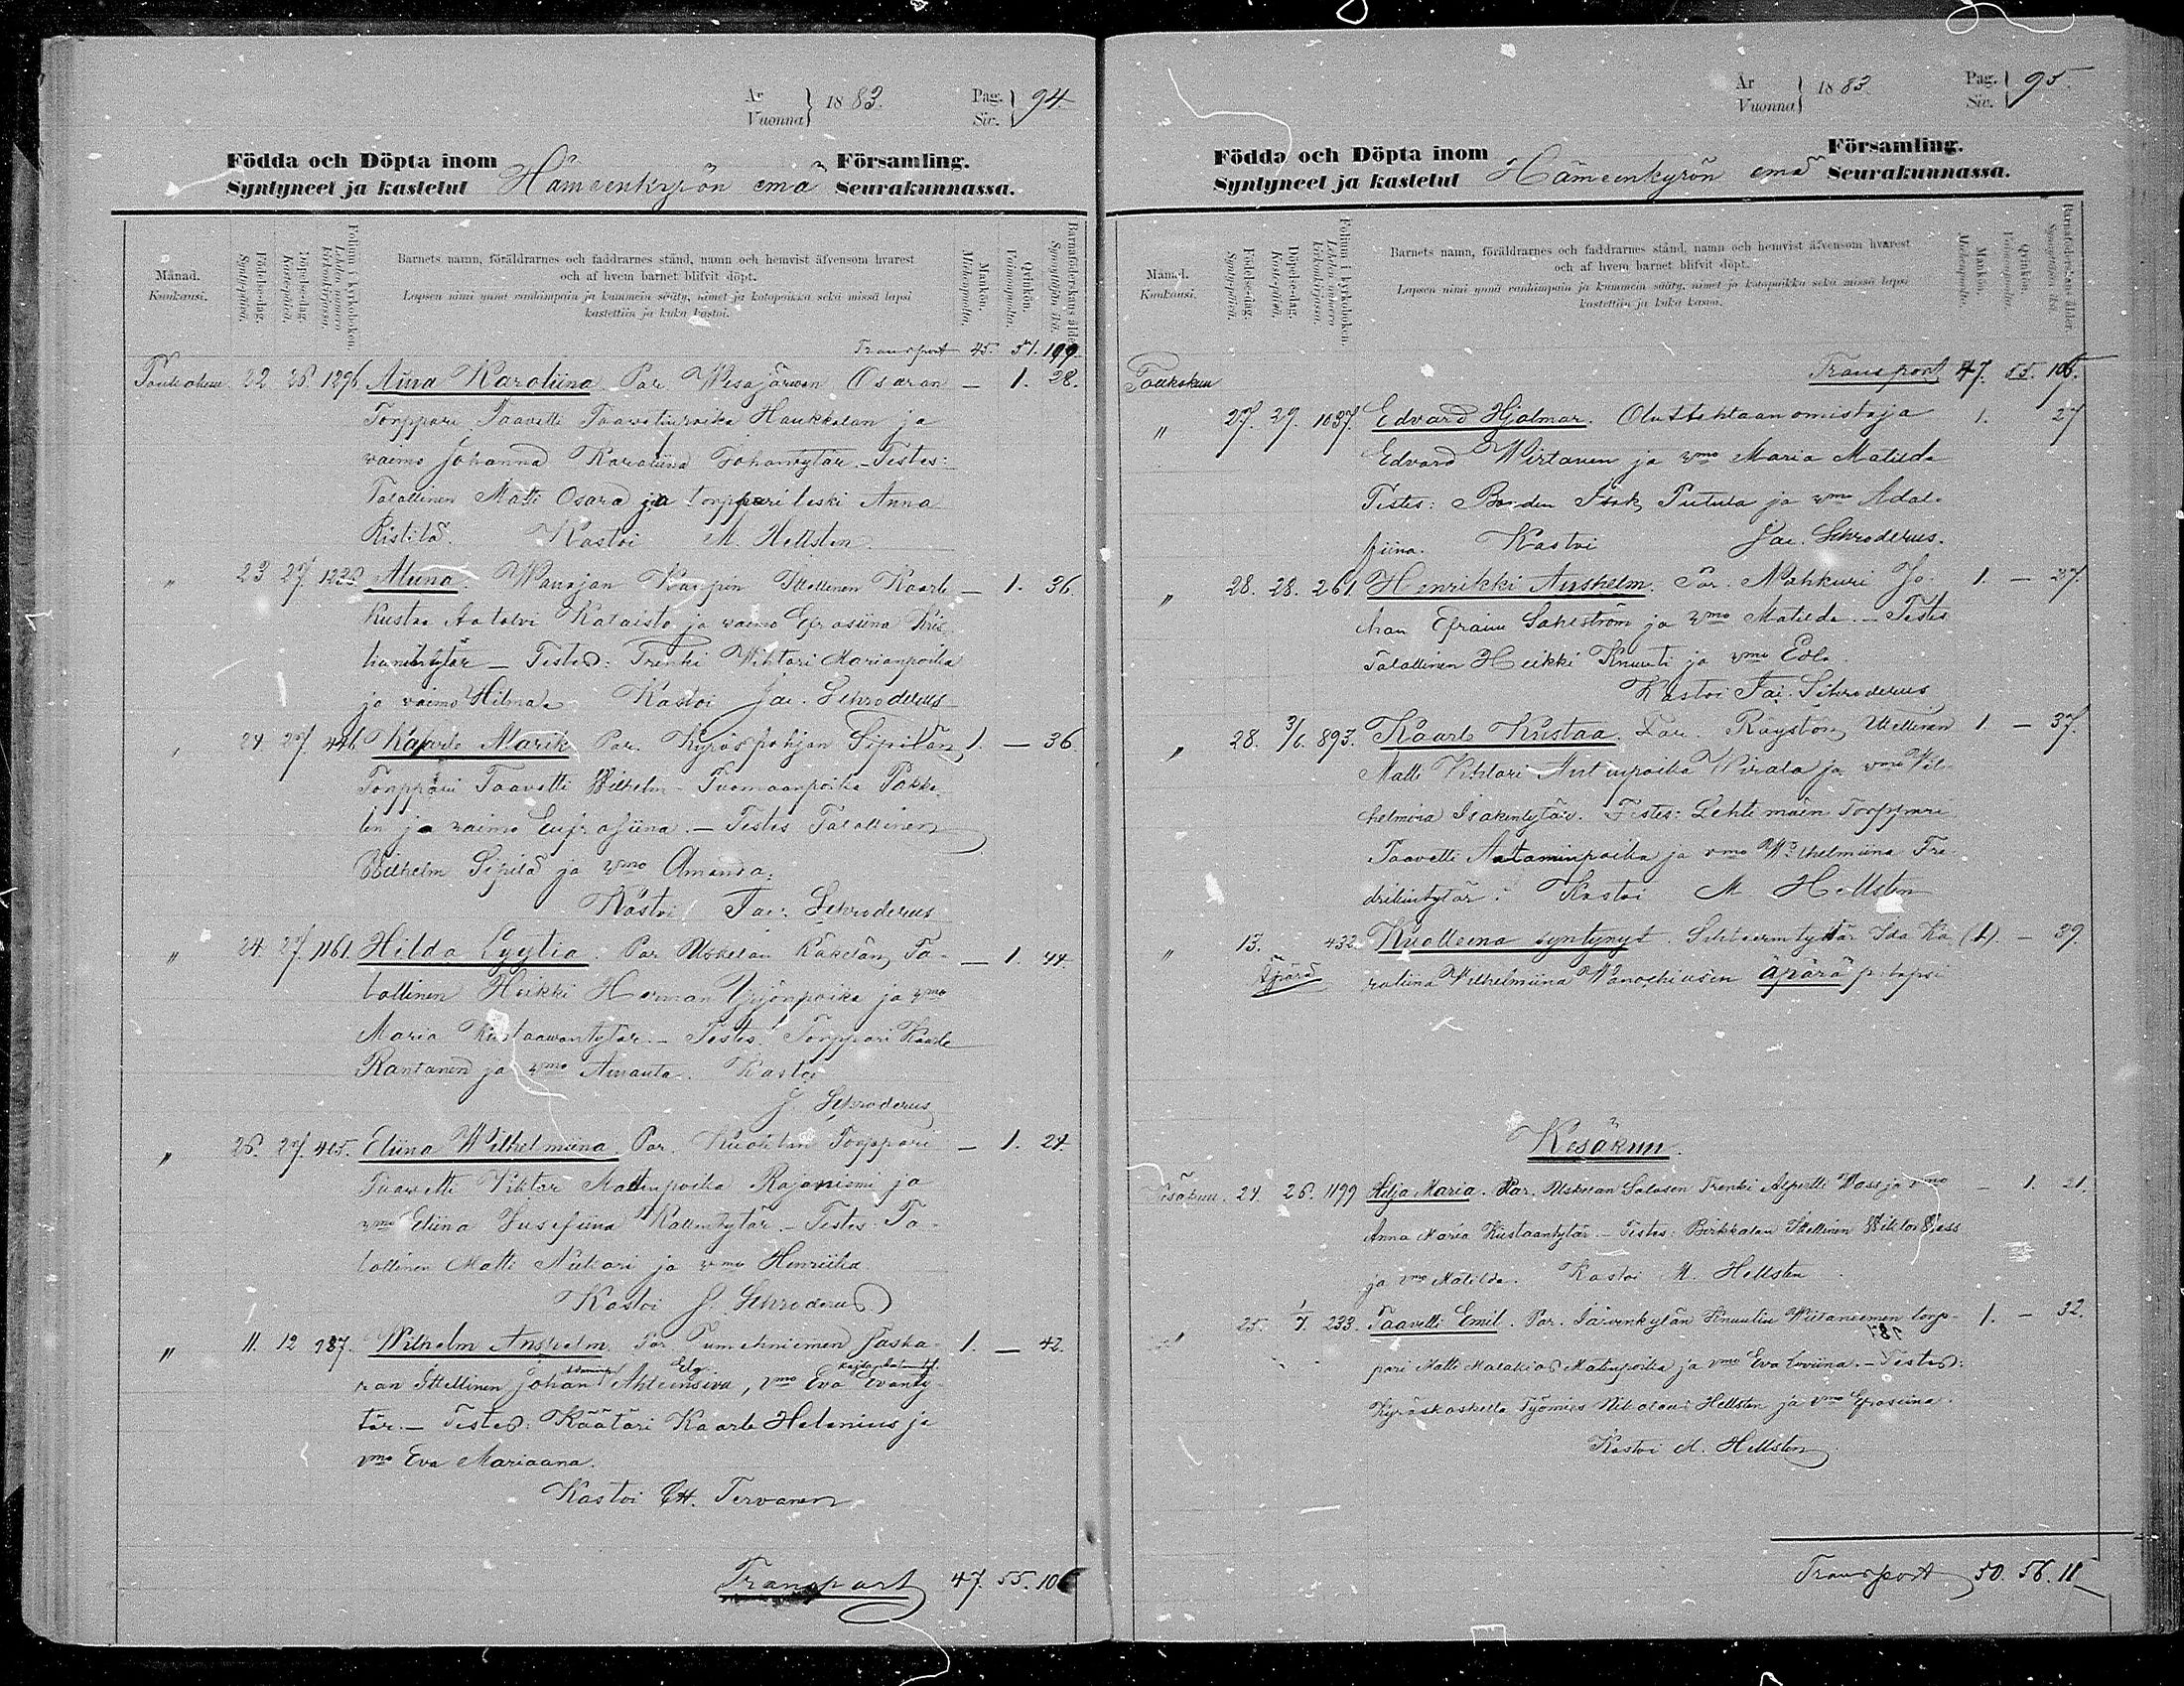 År
Vuonna } 1883. Pag.
Siv. } 94.
Födda och Döpta inom Församling.
Syntyneet ja kastetut Hämeenkyrön emä Seurakunnassa.
Månad.
Kuukausi.
Födelse-dag.
Syntypäivä.
Döpelse-dag.
Kastepäivä.
Folium i kyrkoboken.
Lehden numero kirkonkirjassa.
Barnets namn, föräldrarnes och faddrarnes stånd, namn och hemvist äfvensom hvarest
och af hvem barnet blifvit döpt.
Lapsen nimi ynnä vanhimpain ja kummein sääty, nimet ja kotopaikka sekä missä lapsi
kastettiin ja kuka kastoi.
Mankön.
Miehenpuolia.
Qvinkön.
Vaimonpuolia.
Barnaföderskans ålder.
Synnyttäjän ikä.
Transport 45. 51. 199
Toukokuu. 22 26. 1296 Aina Karoliina. Par. Wesajärwen Osaran — 1. 28.
Torppari Taavetti Taavetinpoika Haukkalan ja
vaimo Johanna Karoliina Johantytär. — Testes:
Talallinen Matti Osara ja torpparileski Anna
Ristilä. Kastoi M. Hellsten.
" 23 27. 1236 Alina. Kaarle — 1. 36.
Kustaa Kalaisto ja vaimo Efrasiina Kris-
tiantytär — Testes: Trenki Wihtori Marianpoika
ja vaimo Hilma. Kastoi Jac. Schroderus
" 24 27. 446. Kaarle Marik Par. Kyröspohjan Sipilän 1. — 36.
Torppari Taavetti Wilhelm Tuomaanpoika Pakka-
len ja vaimo Eufrosiina. — Testes Talallinen
Wilhelm Sipilä ja vmo Amanda.
Kastoi Jac. Schroderus
" 24 27. 1161. Hilda Lyytia. Par Uskelan Käkelän Ta- — 1. 44.
lallinen Heikki Herman Yrjönpoika ja vmo
Maria Kustaawantytär. — Testes: Torppari Kaarle
Rantanen ja vmo Amanta. Kastoi
J. Schroderus
" 26. 27. 405. Eliina Wilhelmiina. Par. Torppari — 1. 24.
Taavetti Viktor Matinpoika Rajaniemi ja
vmo Eliina Jusefiina Kallentytär. — Testes: Ta-
lallinen Matti ja vmo Henriika.
Kastoi J. Schroderus
" 11. 12 987. Wilhelm Anshelm. Par Tumehniemen Jaska- 1. — 42.
ran Ittellinen Johan Ahteensiva, vmo Eva Evanty-
tär. — Testes: Räätäri Kaarle Helenius ja
vmo Eva Mariaana.
Kastoi Tervanen
Transport 47. 55. 106
År
Vuonna } 1883. Pag.
Siv. } 95.
Födda och Döpta inom Församling.
Syntyneet ja kastetut Hämeenkyrön emä Seurakunnassa.
Månad.
Kuukausi.
Födelse-dag.
Syntypäivä.
Döpelse-dag.
Kastepäivä.
Folium i kyrkoboken.
Lehden numero kirkonkirjassa.
Barnets namn, föräldrarnes och faddrarnes stånd, namn och hemvist äfvensom hvarest
och af hvem barnet blifvit döpt.
Lapsen nimi ynnä vanhimpain ja kummein sääty, nimet ja kotopaikka sekä missä lapsi
kastettiin ja kuka kastoi.
Mankön.
Miehenpuolia.
Qvinkön.
Vaimonpuolia.
Barnaföderskans ålder.
Synnyttäjän ikä.
Toukokuu Transport 47. 55. 106.
" 27. 29. 1037. Edvard Hjalmar. Oluttehtaan omistaja 1. 27
Edvard Wirtanen ja vmo Maria Matilda
Testes: Isak Putula ja vmo Adal-
fiina. Kastoi Jac. Schroderus.
" 28. 28. 261. Henrikki Anshelm. Par. Mahkuri Jo- 1. — 37.
han Efraim Sahlström ja vmo Matilda. — Testes
Talallinen Heikki Knuuti ja vmo Edla.
Kastoi Jac. Schroderus
" 28. 3/6. 893. Kaarle Kustaa. Par. Räystön Ittellinen 1. — 37.
Matti Vihtori Antinpoika Wirala ja vmo Vil-
helmina Isakintytär. Testes: Lehtimäen Torppari
Taavetti Aataminpoika ja vmo Wilhelmiina Fre-
drikintytär. Kastoi M. Hellsten
" 13. 432. Kuolleena syntynyt. Ida Ka- (1). — 39.
Äpärä roliina Wilhelmiina äpärä p. lapsi
Kesäkuu.
Kesäkuu. 24. 26. 1199 Hilja Maria. Par. Uskelan Salosen Trenki Alpertti Wass ja vmo — 1. 21.
Anna Maria Kustaantytär. — Testes: Birkkalan Ittellinen Wiktor Wass
ja vmo Matilda. Kastoi M. Hellsten
" 25. 1/7. 233. Taavetti Emil. Par. Järvenkylän Knuutin Wiitaniemen torp- 1. — 32.
pari Matti Malakias Matinpoika ja vmo Eva Loviina. — Testes:
Kyröskoskella Työmies Nikolaus Hellsten ja vmo Efrosiina.
Kastoi M. Hellsten
Transport 50. 56. 11